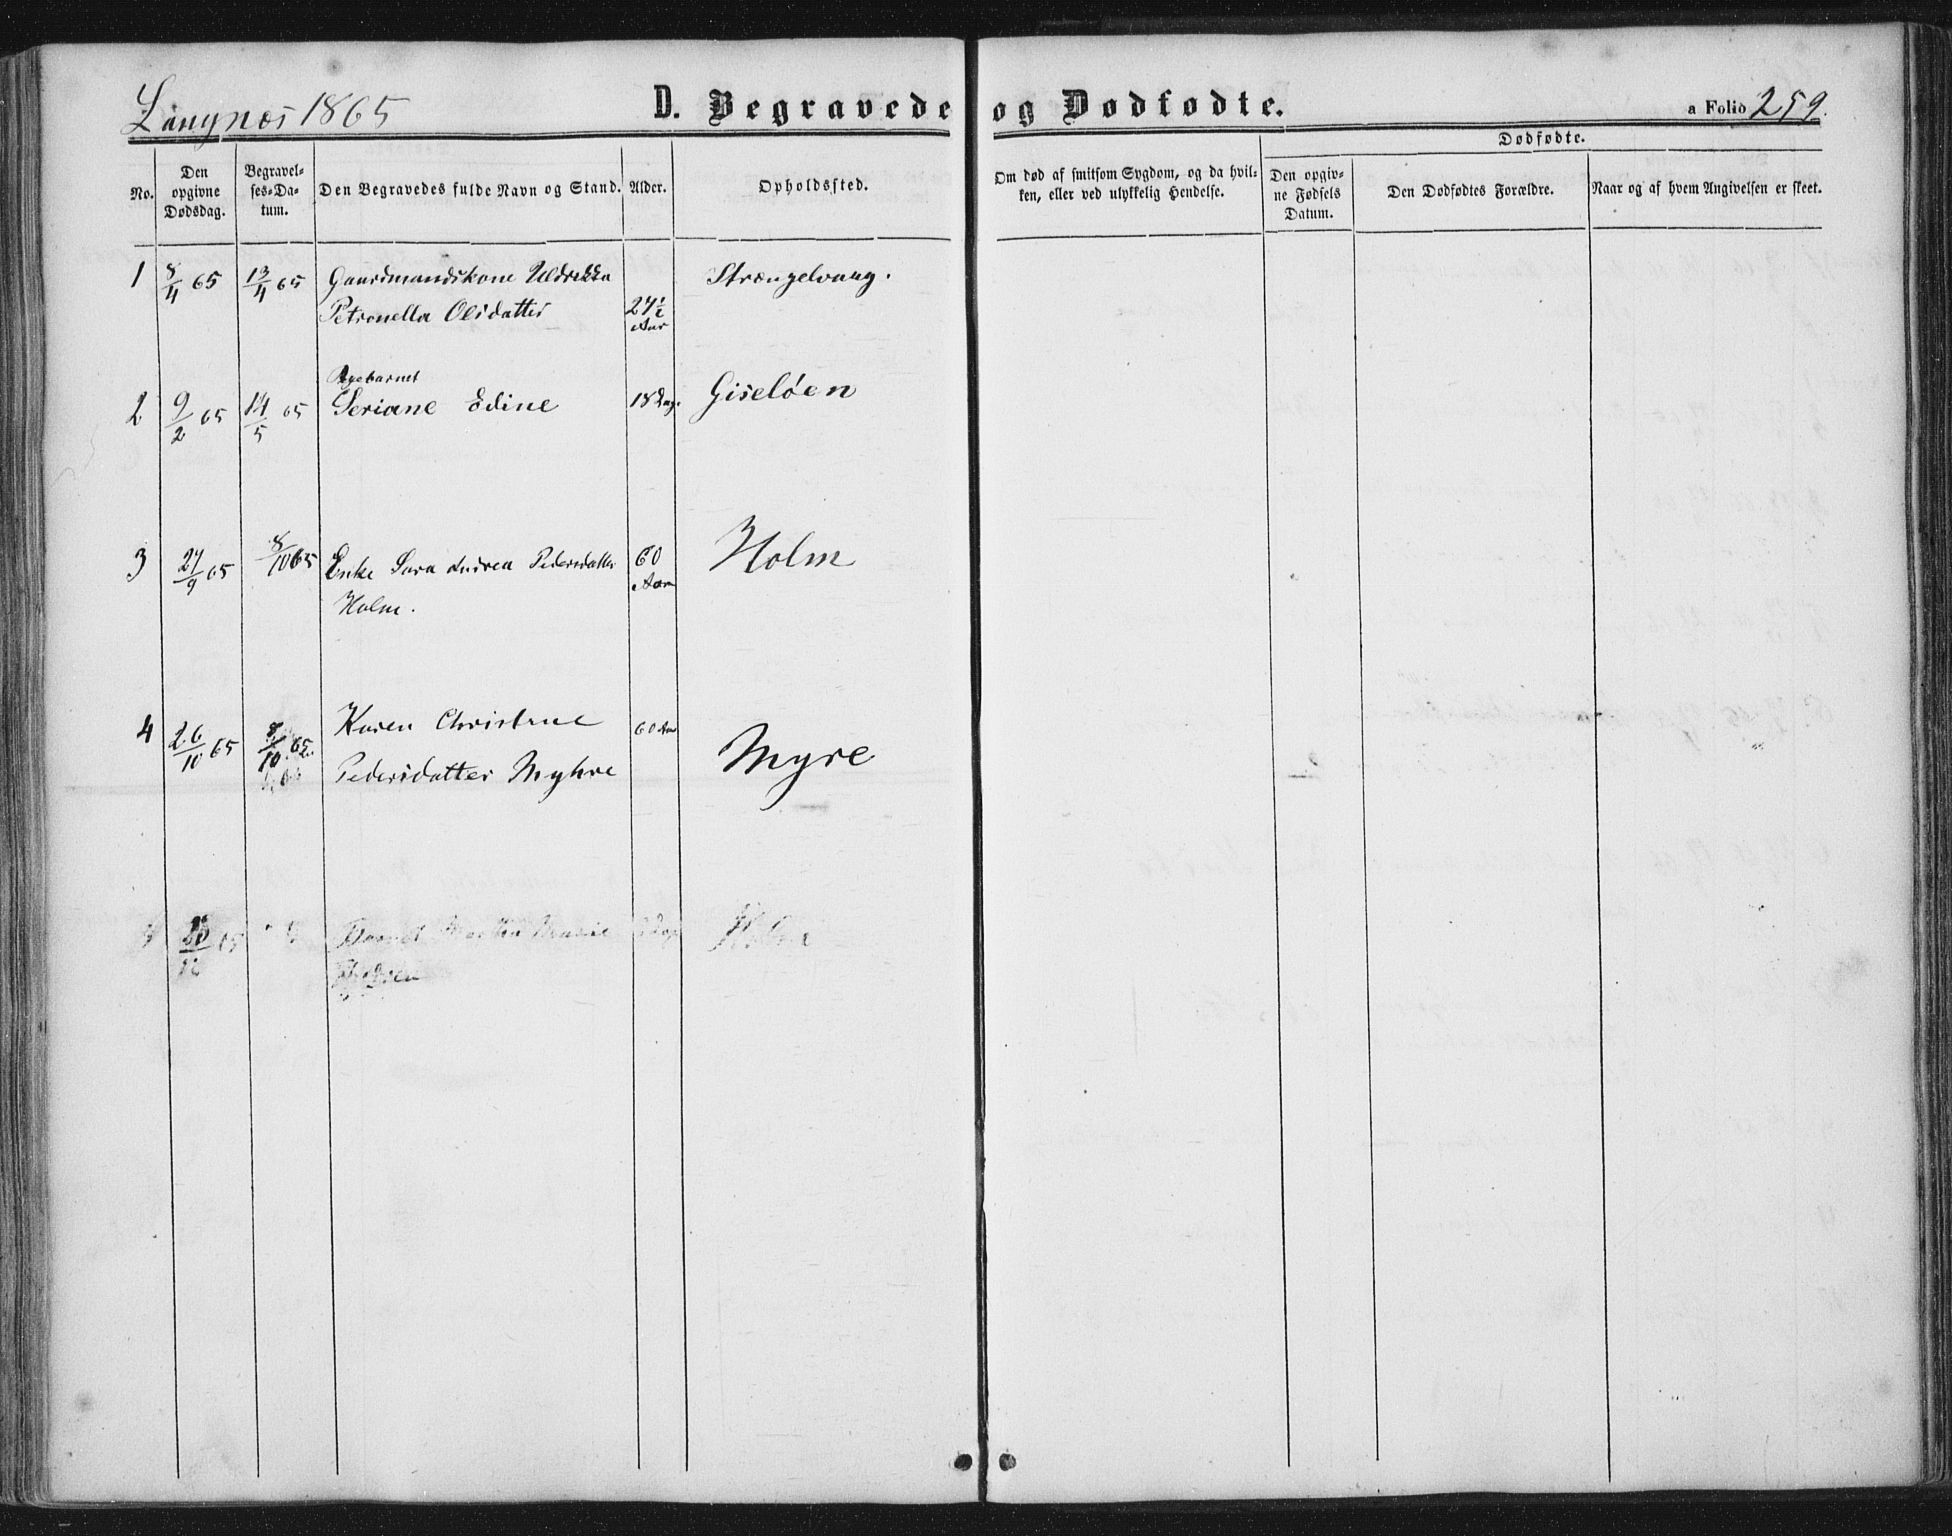 Langnæs 1865
D. Begravede og Dødfødte.
a Folio 259.
No.
Den opgivne Dødsdag.
Begravelses-Datum.
Den Begravedes fulde Navn og Stand.
Alder.
Opholdssted.
Om død af smitsom Sygdom, og da hvilken, eller ved ulykkelig Hendelse.
Dødfødte.
Den opgivne Fødsels Datum.
Den Dødfødtes Forældre.
Naar og af hvem Angivelsen er skeet.
1 8/4 65 13/4 65 Gaardmandskone Uldrikka Strængelvaag.
Petronella Olsdatter 27½ Aar
2 9/2 65 14/5 65 Seriane Edine 18 Dag. Giseløen
3 27/9 65 8/10 65 Enke Sara Andrea Pedersdatter 60 Aar Holm
Holm.
4 26/10 65 8/10 65 Karen Christine 60 Aar Myre
Pedersdatter Myhre
65 Holm